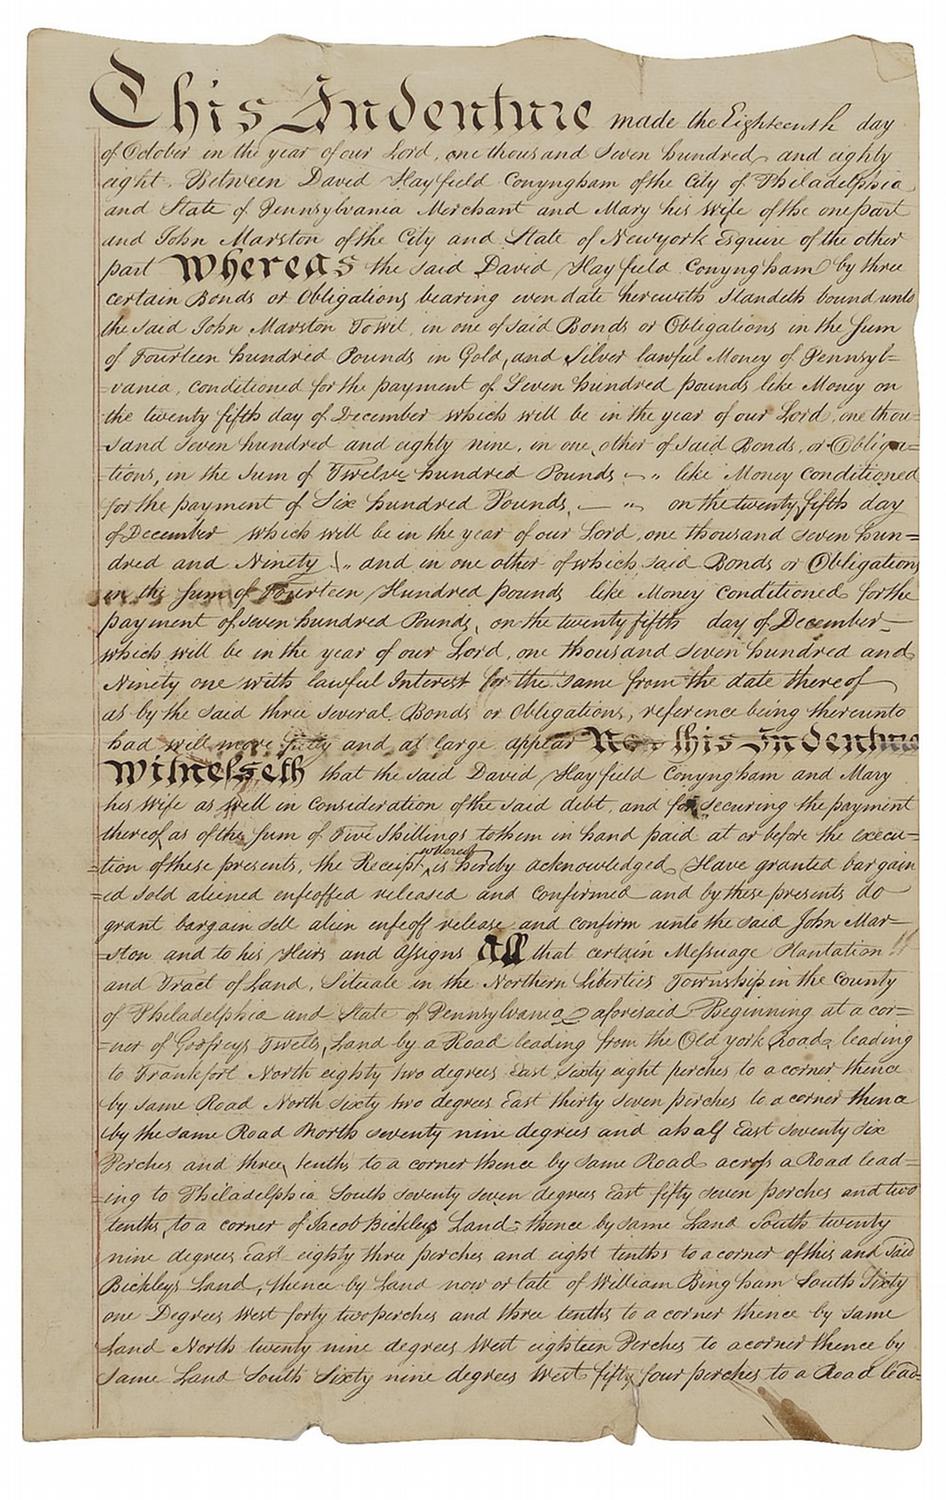 This Indenture made the Eighteenth day
of October in the year of our Lord, one thousand Seven hundred and eighty
eight. Between David Hayfield Conyngham of the City of Philadelphia
and State of Pennsylvania Merchant and Mary his Wife of the one part
and John Marston of the City and State of Newyork Esquire of the other
part Whereas the said David Hayfield Conyngham by three
certain Bonds or Obligations bearing even date herewith Standeth bound unto
the said John Marston Towit, in one of said Bonds or Obligations in the Sum
of Fourteen hundred Pounds in Gold, and Silver lawful Money of Pennsyl=
=vania, conditioned for the payment of Seven hundred pounds like Money on
the twenty fifth day of December which will be in the year of our Lord, one thou=
=sand Seven hundred and eighty nine, in one, other of Said Bonds, or Obliga=
=tions, in the Sum of Twelve hundred Pounds — „ like Money conditioned
for the payment of Six hundred Pounds, — „ on the twenty fifth day
of December which will be in the year of our Lord, one thousand seven hun=
dred and Ninety \„ and in one other of which said Bonds or Obligations
in the Sum of Fourteen Hundred pounds like Money conditioned for the
payment of seven hundred Pounds, on the twenty fifth day of December—
which will be in the year of our Lord, one thousand seven hundred and
Ninety one with lawful Interest for the same from the date thereof
as by the said three several Bonds or Obligations, reference being thereunto
had will more fully and at large appear Now this Indenture
Witnesseth that the said David Hayfield Conyngham and Mary
his Wife as well in consideration of the said debt, and for securing the payment
thereof, as of the Sum of Five Shillings to them in hand paid at or before the execu=
=tion of these presents, the Receipt whereof is hereby acknowledged Have granted bargain
=ed sold aliened enfeoffed released and confirmed and by these presents do
grant bargain sell alien enfeoff release and confirm unto the said John Mar=
=ston and to his Heirs and Assigns All that certain Messuage Plantation
and Tract of Land, Situate in the Northern Liberties Township in the County
of Philadelphia and State of Pennsylvania aforesaid Beginning at a cor=
=ner of Godfreys Twells, Land by a Road leading from the Old york Road, leading
to Frankfort North eighty two degrees East Sixty eight perches to a corner thence
by same Road North sixty two degrees East thirty seven perches to a corner thence
by the same Road North seventy nine degrees and a half East seventy six
Perches and three, tenths to a corner thence by same Road across a Road lead=
=ing to Philadelphia South seventy seven degrees East fifty seven perches and two
tenths, to a corner of Jacob Bickleys Land, thence by same Land South twenty
nine degrees East eighty three perches and eight tenths to a corner of this and Said
Bickleys Land, thence by Land now or late of William Bingham South Sixty
one Degrees West forty two perches and three tenths to a corner thence by same
Land North twenty nine degrees West eighteen Perches to a corner thence by
Same Land South Sixty nine degrees West fifty four perches to a Road lead=